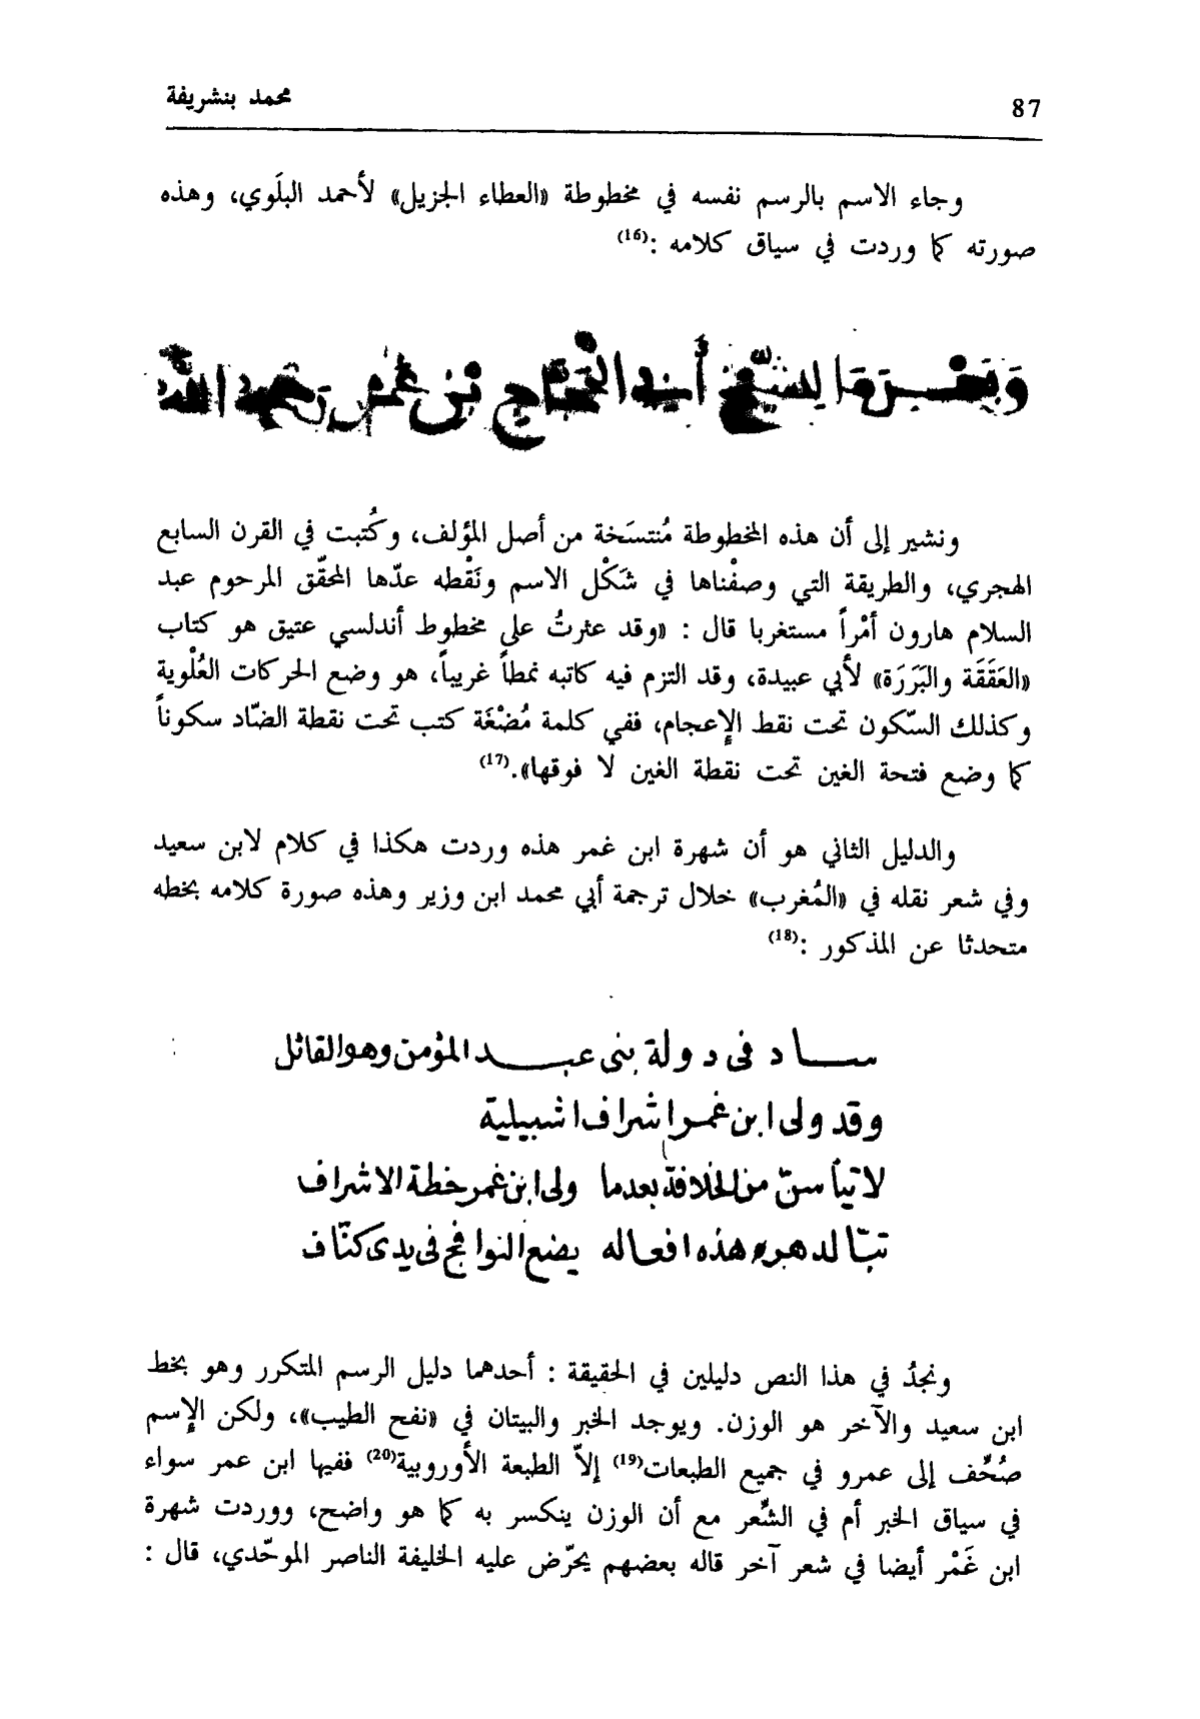 87
محمد بنشريفة
وجاء الاسم بالرسم نفسه في مخطوطة «العطاء الجزيل» لأحمد البلَوي، وهذه
صورته كما وردت في سياق كلامه :(16)
للشيخ أبي الحجاج بن غمر رحمه الله
ونشير إلى أن هذه المخطوطة مُنتسَخة من أصل المؤلف، وكُتبت في القرن السابع
الهجري، والطريقة التي وصفْناها في شَكْل الاسم ونَقْطه عدّها المحقّق المرحوم عبد
السلام هارون أمْراً مستغربا قال : «وقد عثرتُ على مخطوط أندلسي عتيق هو كتاب
«العَقَقَة والبَرَرَة» لأبي عبيدة، وقد التزم فيه كاتبه نمطاً غريباً، هو وضع الحركات العُلْوية
وكذلك السّكون تحت نقط الإعجام، ففي كلمة مُضْغَة كتب تحت نقطة الضّاد سكوناً
كما وضع فتحة الغين تحت نقطة الغين لا فوقها».(17)
والدليل الثاني هو أن شهرة ابن غمر هذه وردت هكذا في كلام لابن سعيد
وفي شعر نقله في «المُغرب» خلال ترجمة أبي محمد ابن وزير وهذه صورة كلامه بخطه
متحدثا عن المذكور :(18)
ساد فى دولة بنى عبد المؤمن وهو القائل
وقد ولى ابن غمر اشراف اشبيلية
لا تيأسنّ من الخلافة بعدما ولى ابن غمر خطة الاشراف
تبّا لدهر هذه افعاله يضع النوافج فى يدى كنّاف
ونجدُ في هذا النص دليلين في الحقيقة : أحدهما دليل الرسم المتكرر وهو بخط
ابن سعيد والآخر هو الوزن. ويوجد الخبر والبيتان في «نفح الطيب»، ولكن الإسم
صُحّف إلى عمرو في جميع الطبعات(19) إلاّ الطبعة الأوروبية(20) ففيها ابن عمر سواء
في سياق الخبر أم في الشّعر مع أن الوزن ينكسر به كما هو واضح، ووردت شهرة
ابن غَمْر أيضا في شعر آخر قاله بعضهم يحرّض عليه الخليفة الناصر الموحّدي، قال :